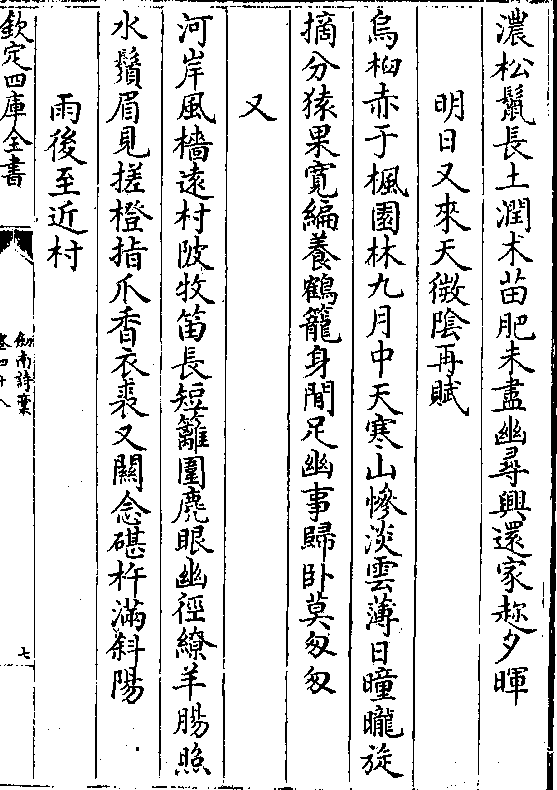 濃松鬛長土潤术苗肥未盡幽尋興還家趂夕暉
明日又來天微陰再賦
烏桕赤于楓園林九月中天寒山慘淡雲薄日曈曨旋
摘分猿果寛編養鶴籠身閒足幽事歸卧莫匆匆
又
河岸風檣遠村陂牧笛長短籬圍麂眼幽徑繚羊腸照
水鬚眉見搓橙指爪香衣裘又闗念碪杵滿斜陽
雨後至近村
欽定四庫全書
劍南詩藁
卷四十八
七